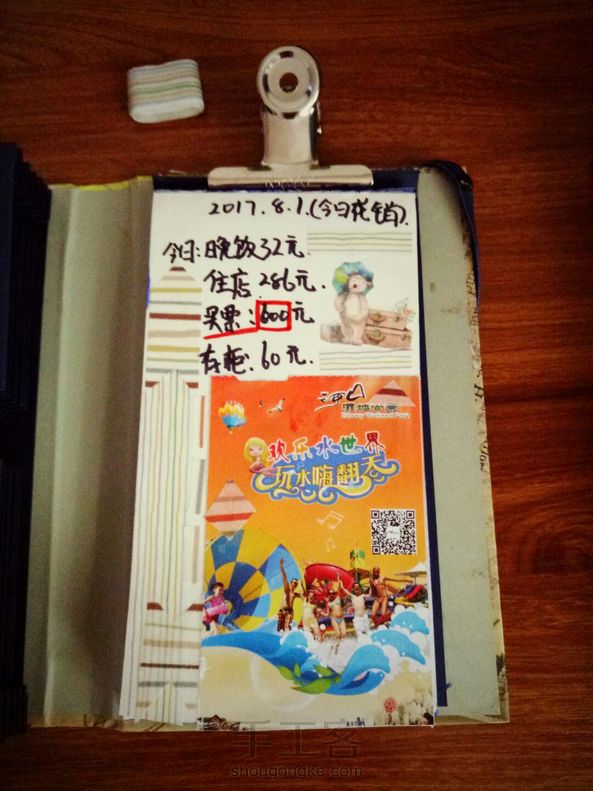 2017.8.1.(今日花销).
今日:晚饭32元.
住店:286元.
买票:600元
存柜:60元.
湿地公园
欢乐水世界
玩水嗨翻天
手工客
shougongke.com